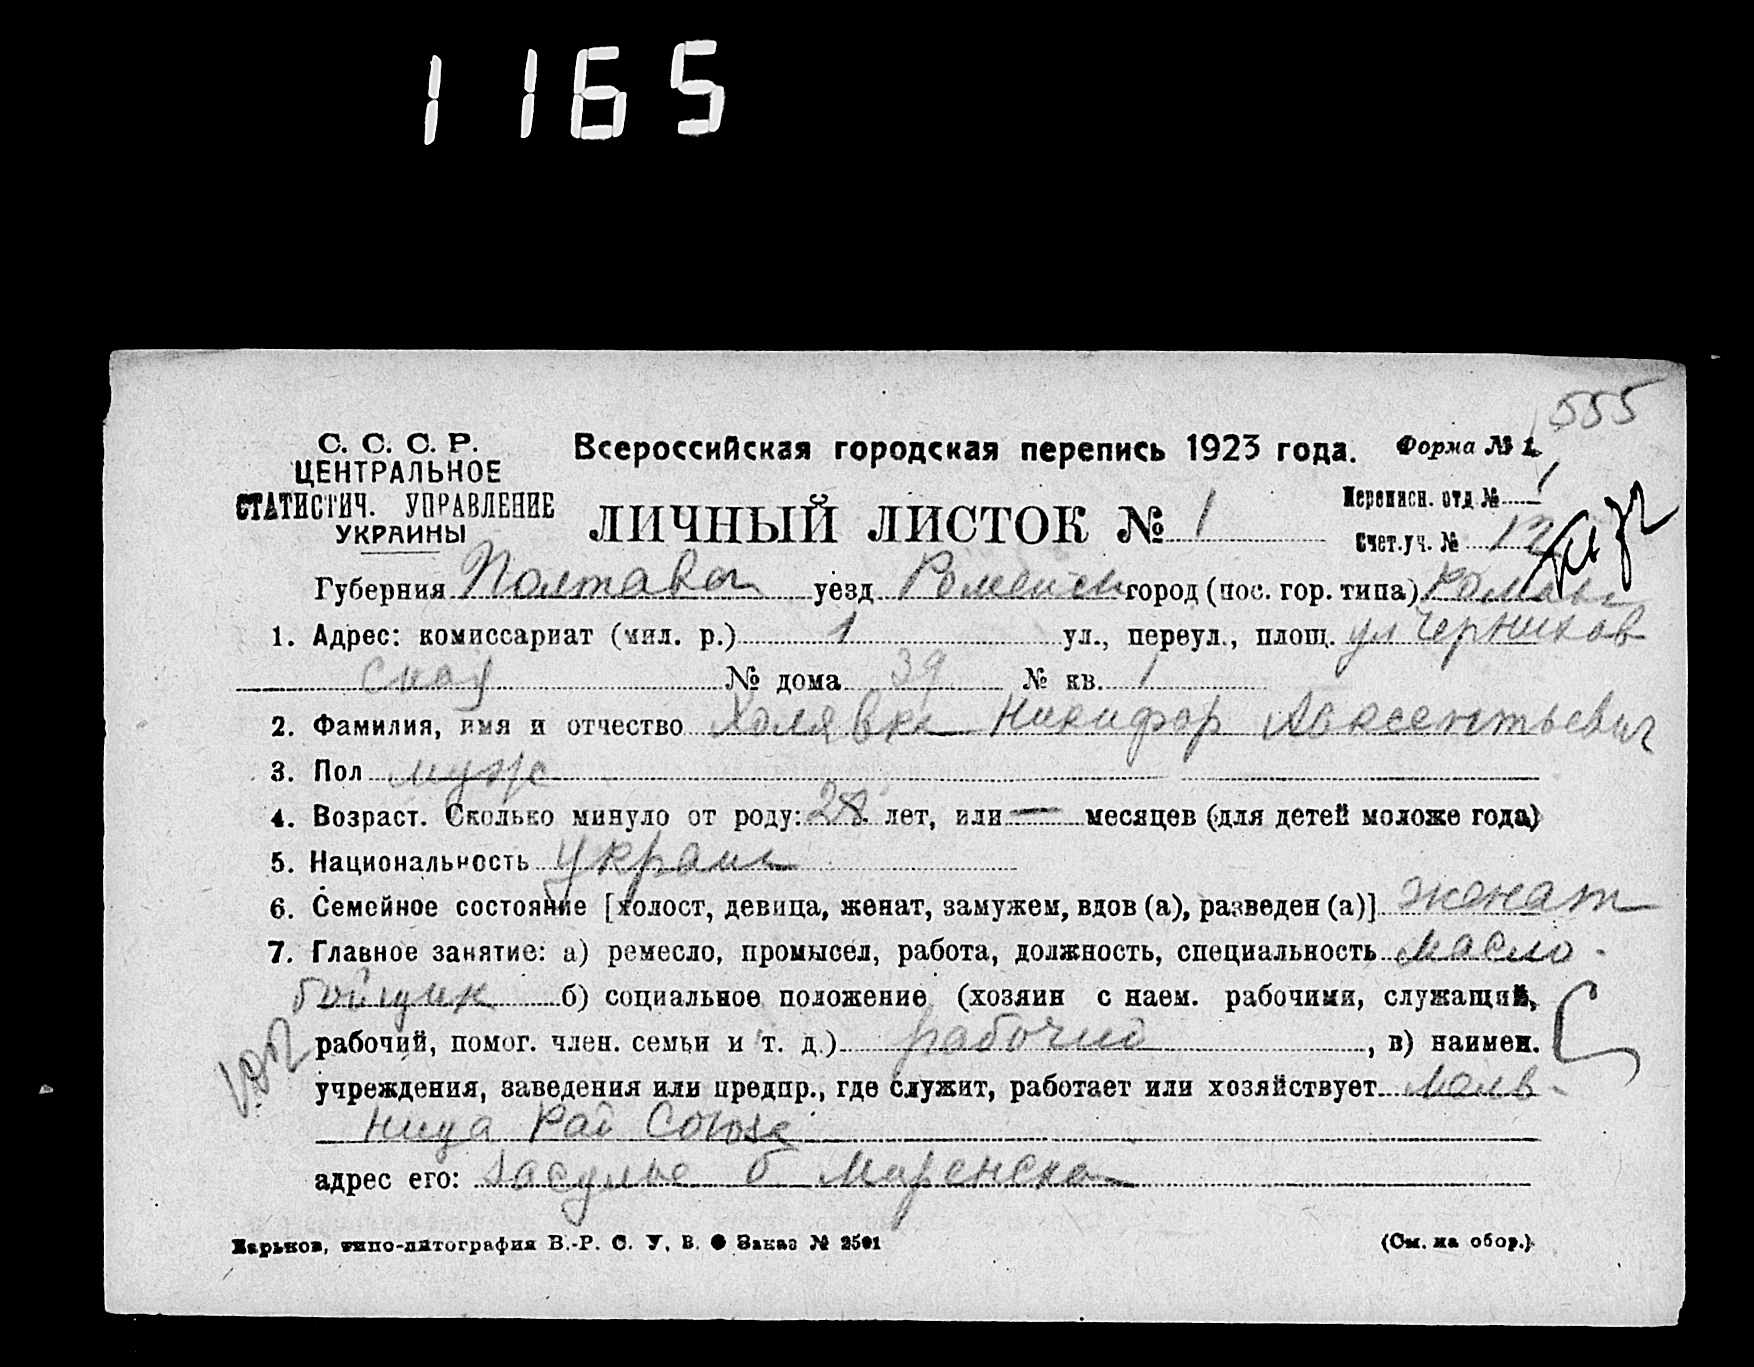 1165
555
С. С. С. Р.
ЦЕНТРАЛЬНОЕ
СТАТИСТИЧ. УПРАВЛЕНИЕ
УКРАИНЫ
Всероссийская городская перепись 1923 года. Форма № 1.
ЛИЧНЫЙ ЛИСТОК № 1
Переписн. отд № 1
Счет.уч. № 12
Губерния Полтавск уезд Роменск город (пос. гор. типа) Ромны
1. Адрес: комиссариат (мил. р.) 1 ул., переул., площ. ул Черников
ская № дома 39 № кв. 1
2. Фамилия, имя и отчество Холявка Никифор Авксентьевич
3. Пол муж
4. Возраст. Сколько минуло от роду: 28 лет, или — месяцев (для детей моложе года)
5. Национальность украин
6. Семейное состояние [холост, девица, женат, замужем, вдов (а), разведен (а)] женат
7. Главное занятие: а) ремесло, промысел, работа, должность, специальность масло-
бойщик б) социальное положение (хозяин с наем. рабочими, служащий,
рабочий, помог. член. семьи и т. д.) рабочий, в) наимен.
учреждения, заведения или предпр., где служит, работает или хозяйствует
ница Рай Союза
адрес его: Засулье б
Харьков, типо-литография В.-Р. С. У. В. Заказ № 2501
(См. на обор.)